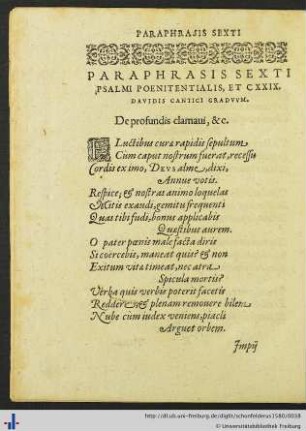 PARAPHRASIS SEXTI
PARAPHRASIS SEXTI
PSALMI POENITENTIALIS, ET CXXIX.
DAVIDIS CANTICI GRADVVM.
De profundis clamaui, &c.
FLuctibus cura rapidis sepultum
Cum caput nostrum fuerat, recessu
Cordis ex imo, DEVS alme, dixi,
Annue votis.
Respice, & nostras animo loquelas
Mitis exaudi, gemitu frequenti
Quas tibi fudi, bonus applicabis
Questibus aurem.
O pater pœnis malefacta diris
Si coërcebis, maneat quis? & non
Exitum vitæ timeat, nec atra
Specula mortis?
Verba quis verbis poterit facetis
Reddere, & plenam remouere bilem
Nube cum iudex veniens, piacli
Arguet orbem.
Impij
http://dl.ub.uni-freiburg.de/diglit/schonfelderus1580/0038
© Universitätsbibliothek Freiburg